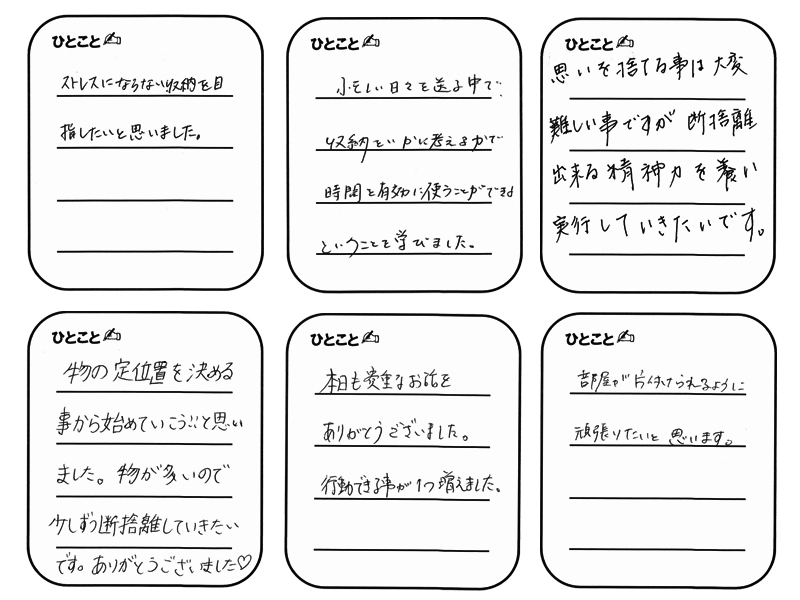 ひとこと
ストレスにならない収納を目
指したいと思いました。
ひとこと
忙しい日々を送る中で、
収納をいかに考えるかで
時間を有効に使うことができる
ということを学びました。
ひとこと
思いを捨てる事は大変
難しい事ですが 断捨離
出来る精神力を養い
実行していきたいです。
ひとこと
物の定位置を決める
事から始めていこう!!と思い
ました。物が多いので
少しずつ断捨離していきたい
です。ありがとうございました♡
ひとこと
本日も貴重なお話を
ありがとうございました。
行動できる事が1つ増えました。
ひとこと
部屋が片付けられるように
頑張りたいと思います。